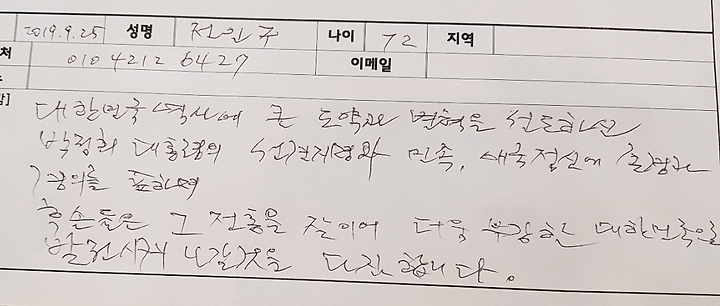 2019.9.25 성명 전인구 나이 72 지역
처 010 4212 6427 이메일
감]
대한민국 역사에 큰 도약과 변혁을 선도하신
박정희 대통령의 선견지명과 민족, 애국정신에 존경과
경의를 표하며
후손들은 그 전통을 잘이어 더욱 부강한 대한민국으로
발전시켜 나갈것을 다짐합니다.